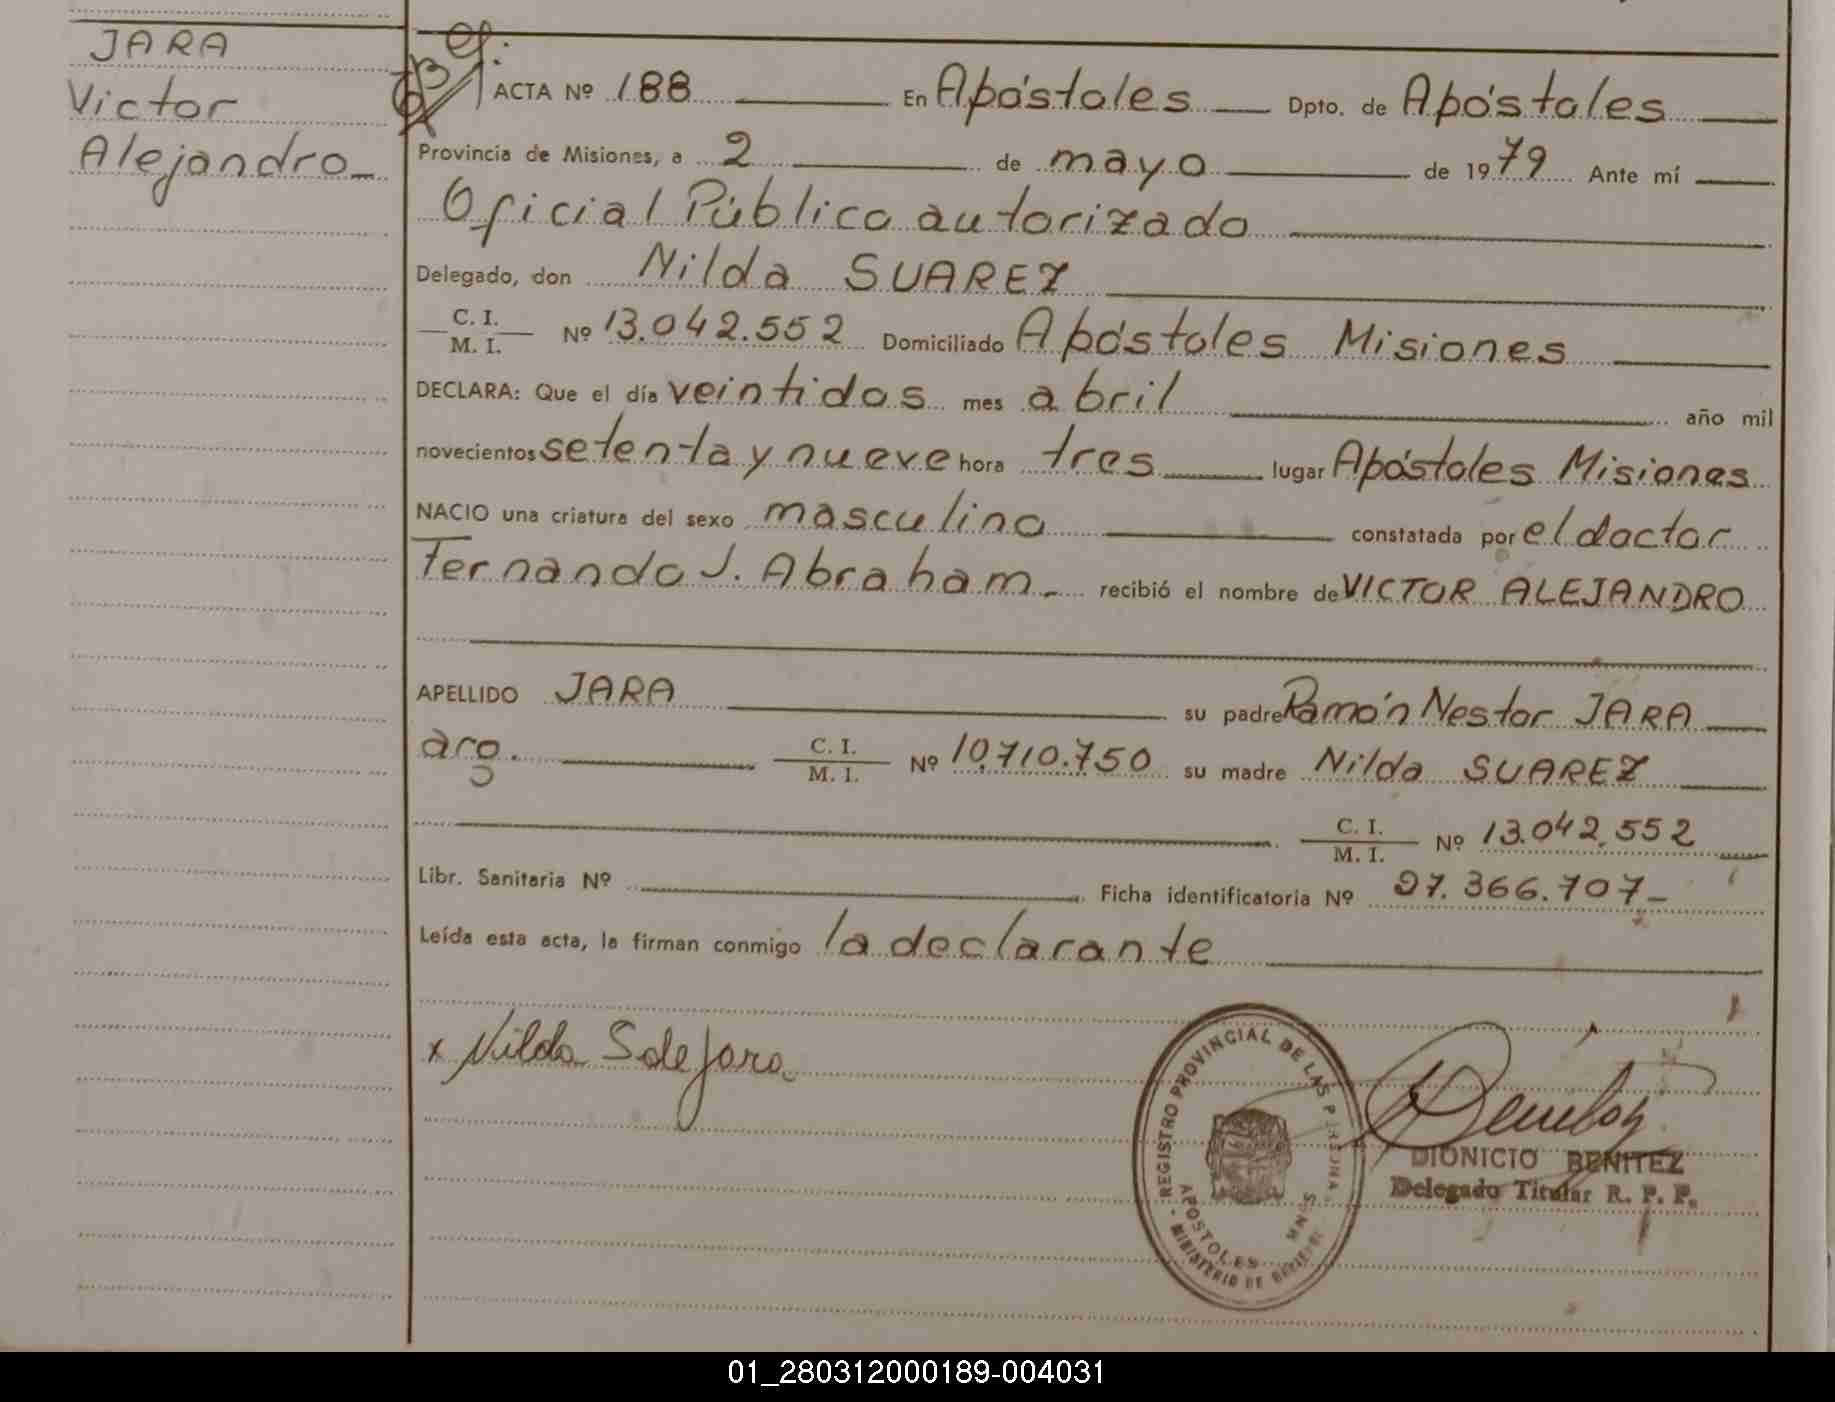 JARA
Victor
Alejandro
ACTA Nº 188 En Apóstoles Dpto. de Apóstoles
Provincia de Misiones, a 2 de mayo de 1979 Ante mí
Oficial Público autorizado
Delegado, don Nilda SUAREZ
C. I.
M. I. Nº 13.042.552 Domiciliado Apóstoles Misiones
DECLARA: Que el día veintidos mes abril año mil
novecientos setenta y nueve hora tres lugar Apóstoles Misiones
NACIO una criatura del sexo masculino constatada por el doctor
Fernando J. Abraham recibió el nombre de VICTOR ALEJANDRO
APELLIDO JARA su padre Ramón Nestor JARA
arg. C. I.
M. I. Nº 10.710.750 su madre Nilda SUAREZ
C. I.
M. I. Nº 13.042.552
Libr. Sanitaria Nº Ficha identificatoria Nº 27.366.707-
Leída esta acta, la firman conmigo la declarante
x Nilda S de Jara
REGISTRO PROVINCIAL DE LAS PERSONAS
APOSTOLES MNES
MINISTERIO DE
DIONICIO BENITEZ
Delegado Titular R. P. P.
01_280312000189-004031